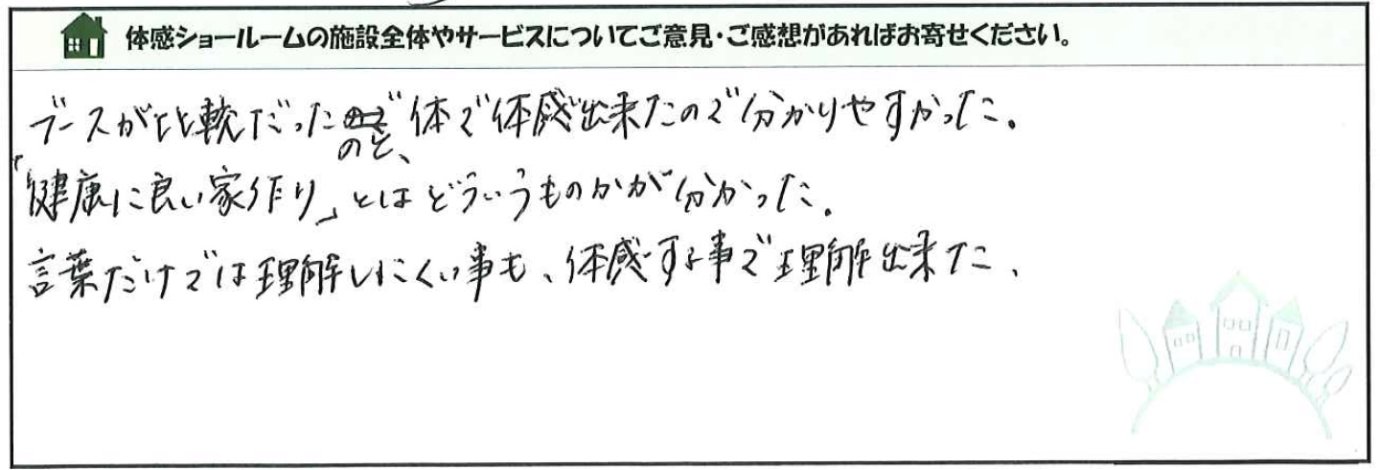 体感ショールームの施設全体やサービスについてご意見・ご感想があればお寄せください。
ブースがヒヒ較だったのと、体で体感出来たので分かりやすかった。
「健康に良い家作り」とはどういうものかが分かった。
言葉だけでは理解しにくい事も、体感する事で理解出来た、